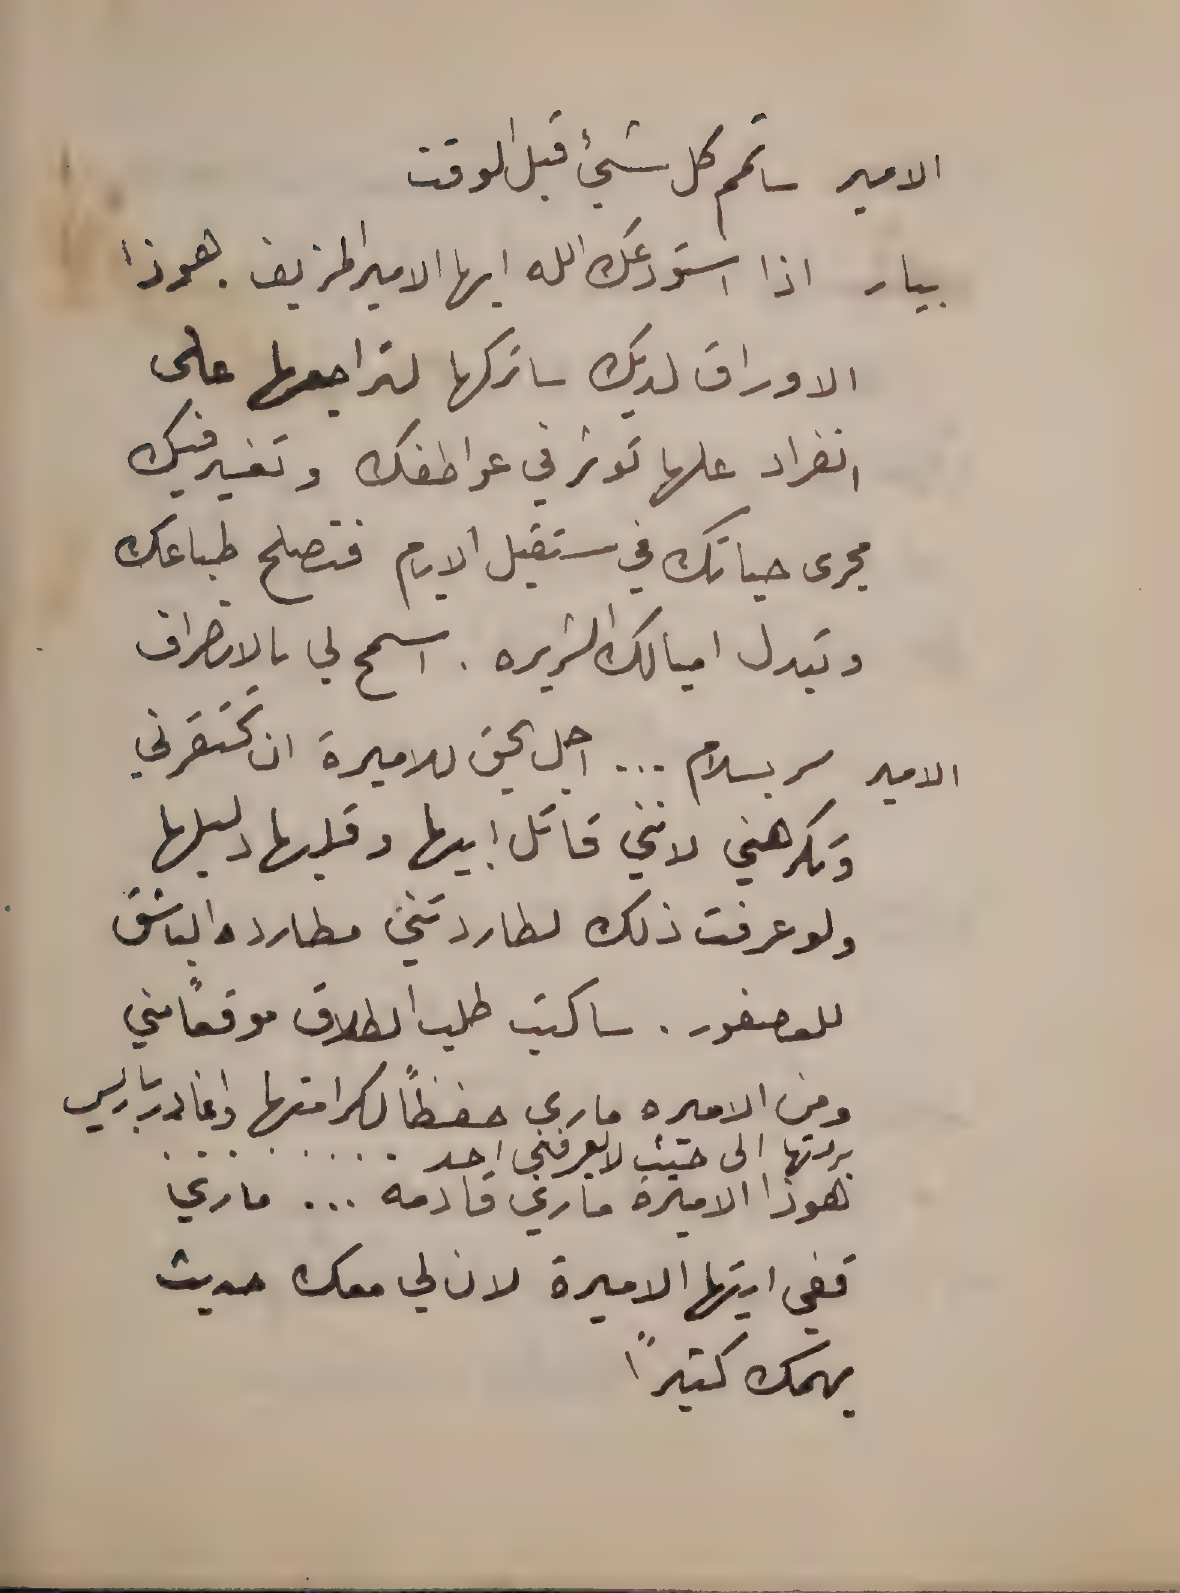 الامير ساتمم كل شيئ قبل الوقت
بيار اذا استودعك الله ايها الامير المزيف . هوذا
الاوراق لديك ساتركها لتراجعها على
انفراد علها توثر في عواطفك وتغير فيك
مجرى حياتك في مستقبل الايام فتصلح طباعك
وتبدل اميالك الشريره . اسمح لي بالانصراف
الامير سر بسلام ... اجل يحق للاميرة ان تحتقرني
وتكرهني لانني قاتل ابيها وقلبها دليلها
ولو عرفت ذلك لطاردتني مطارده الباشق
للعصفور . ساكتب طلب الطلاق موقعاً مني
ومن الاميره ماري حفظاً لكرامتها واغادر باريس
الى حيث لا يعرفني احد . . . . . . . .
هوذا الاميرة ماري قادمه ... ماري
قفي ايتها الاميرة لان لي معك حديث
يهمك كثيراً